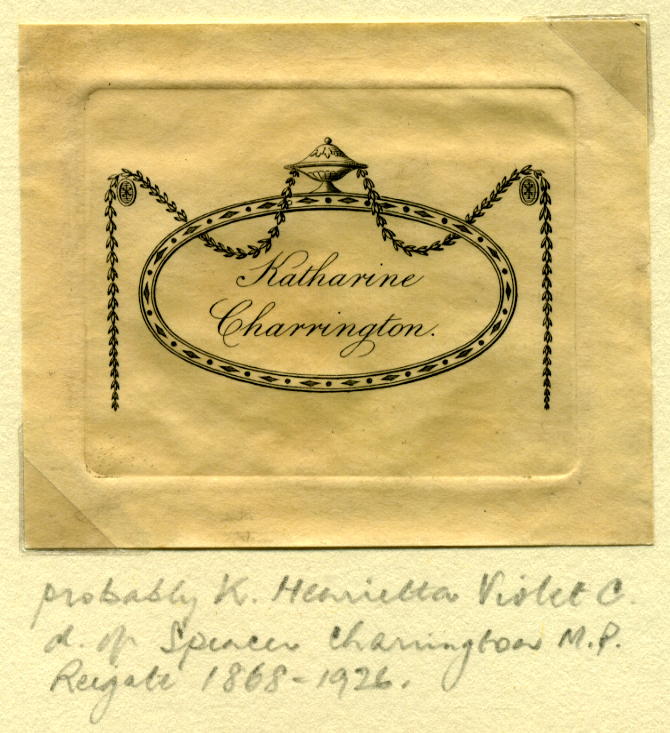 Katharine
Charrington.
probably K. Henrietta Violet C.
d. of Spencer Charrington M.P.
Reigate 1868-1926.